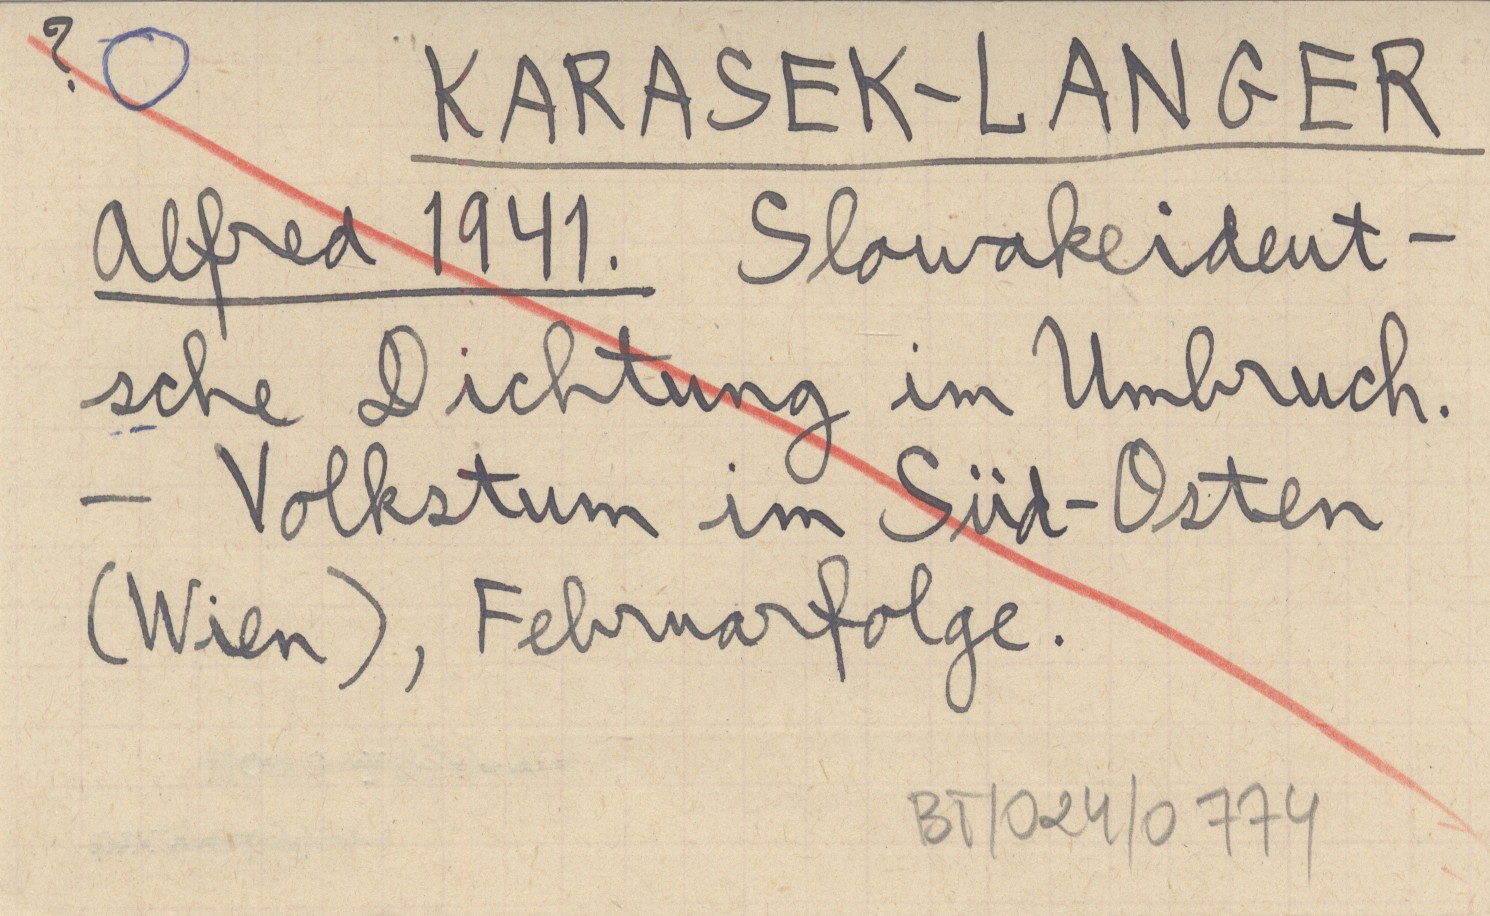 ? KARASEK-LANGER
Alfred 1941. Slowakeideut-
sche Dichtung im Umbruch.
– Volkstum im Süd-Osten
(Wien), Februarfolge.
BT/024/0774